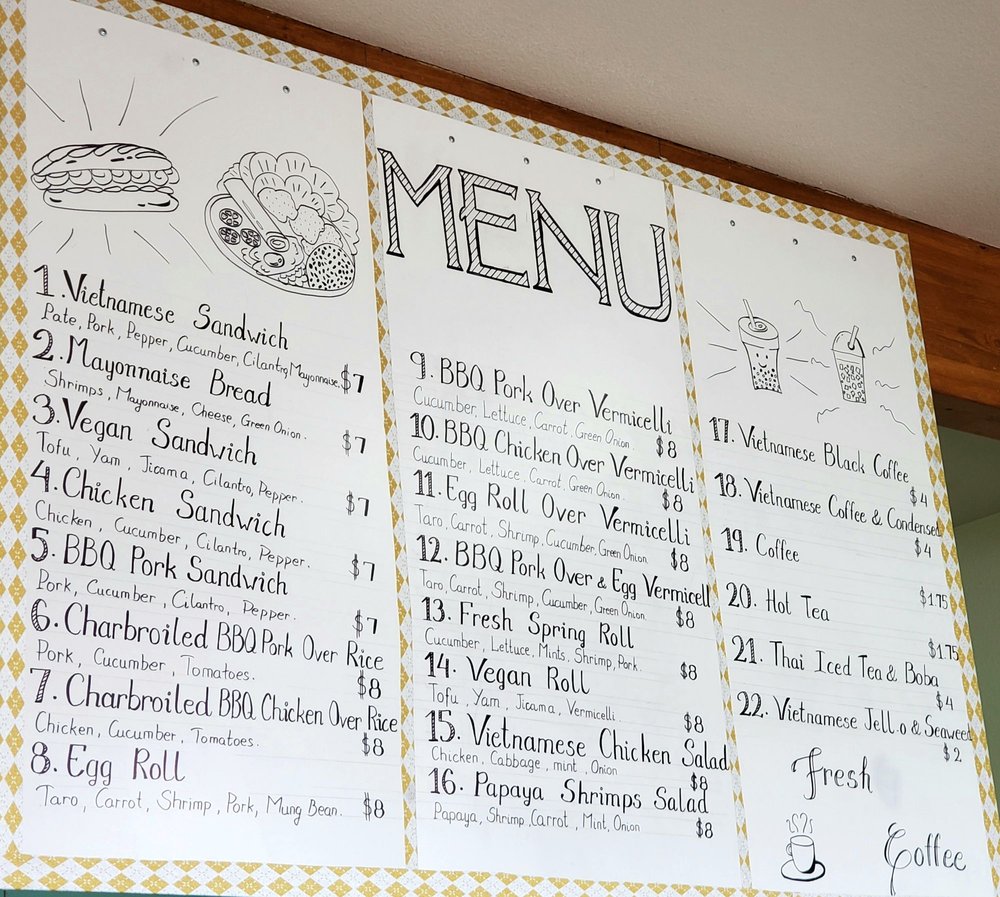 1. Vietnamese Sandwich
Pate, Pork, Pepper, Cucumber, Cilantro, Mayonnaise. $7
2. Mayonnaise Bread
Shrimps, Mayonnaise, Cheese, Green Onion. $7
3. Vegan Sandwich
Tofu, Yam, Jicama, Cilantro, Pepper. $7
4. Chicken Sandwich
Chicken, Cucumber, Cilantro, Pepper. $7
5. BBQ Pork Sandwich
Pork, Cucumber, Cilantro, Pepper. $7
6. Charbroiled BBQ Pork Over Rice
Pork, Cucumber, Tomatoes. $8
7. Charbroiled BBQ Chicken Over Rice
Chicken, Cucumber, Tomatoes. $8
8. Egg Roll
Taro, Carrot, Shrimp, Pork, Mung Bean. $8
MENU
9. BBQ Pork Over Vermicelli
Cucumber, Lettuce, Carrot, Green Onion $8
10. BBQ Chicken Over Vermicelli
Cucumber, Lettuce, Carrot, Green Onion. $8
11. Egg Roll Over Vermicelli
Taro, Carrot, Shrimp, Cucumber, Green Onion $8
12. BBQ Pork Over & Egg Vermicell
Taro, Carrot, Shrimp, Cucumber, Green Onion. $8
13. Fresh Spring Roll
Cucumber, Lettuce, Mints, Shrimp, Pork. $8
14. Vegan Roll
Tofu, Yam, Jicama, Vermicelli. $8
15. Vietnamese Chicken Salad
Chicken, Cabbage, mint, Onion $8
16. Papaya Shrimps Salad
Papaya, Shrimp, Carrot, Mint, Onion $8
17. Vietnamese Black Coffee
$4
18. Vietnamese Coffee & Condensed
$4
19. Coffee
$1.75
20. Hot Tea
$1.75
21. Thai Iced Tea & Boba
$4
22. Vietnamese Jell.o & Seaweed
$2
Fresh
Coffee